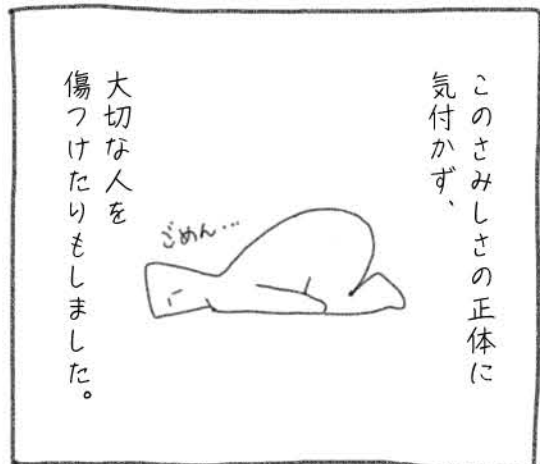 このさみしさの正体に
気付かず、
ごめん…
大切な人を
傷つけたりもしました。